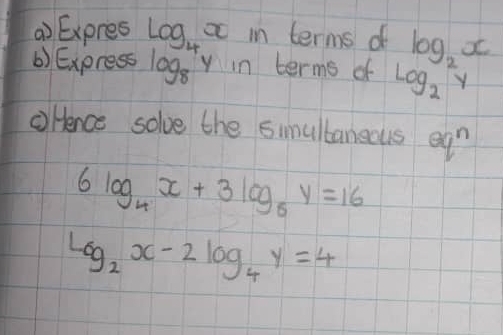 a) Expres Log₄ x in terms of log₂ x
b) Express log₈ y in terms of Log₂ y
c) Hence solve the simultaneous eqⁿ
6 log₄ x + 3 log₈ y = 16
Log₂ x - 2 log₄ y = 4